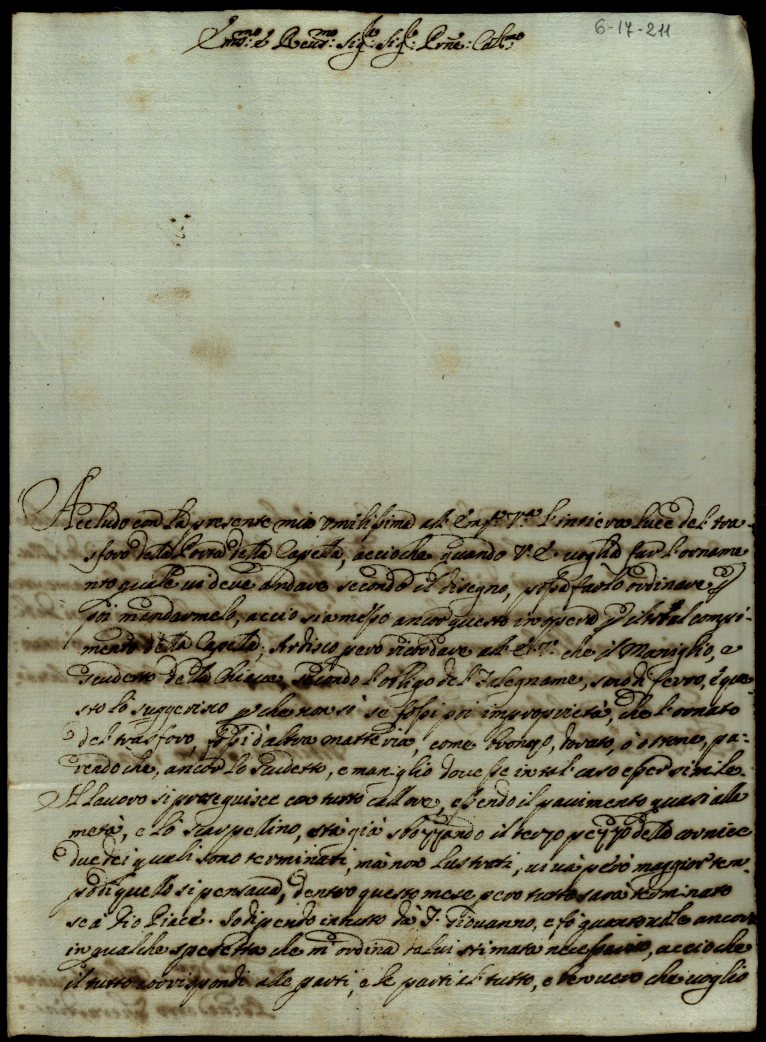 6-17-211
Em.mo e Reu.mo Sig.r Sig.r Prñe: Col.mo
Accludo con la presente mia vmilissima all' Em.a V.ra l'intiera luce del tra=
sforo della Porta della Capella, accioche quando V. E. voglia far l'orname
nto quale ui deue andare secondo il disegno, possa farlo ordinare e
poi mandarmelo, acciò sia messo ancor questo in opera p total compi=
mento della Capella; Ardisco però ricordare all' E. V. che il Maniglio, e
scudetto della Chiaue, secondo l'obligo del Falegname, sono di ferro, e que
sto lo suggerisco p che non si facessi poi improprietà, che l'ornato
del trasforo, fossi d'altra matteria, come bronzo, dorato, ò ottone, pa=
rendo che, ancor lo scudetto, e maniglio douesse in tal caso esser simile.
Il lauoro si proseguisce con tutto callore, essendo il pauimento quasi alla
metà, e lo scarpelino, stà già sbozzando il terzo pezzo della cornice
due dei quali sono terminati, mà non lustrati, ui uà però maggior tem=
po di quello si pensaua, dentro questo mese pero tutto sarà terminato
se a Dio Piace. Io dipendo in tutto da S. Giouanno, e fò quanto uole ancora
in qualche spesetta che m'ordina da lui stimata necessaria, accioche
il tutto corrispondi alle parti, e le parti al tutto, e ben uero che uoglio